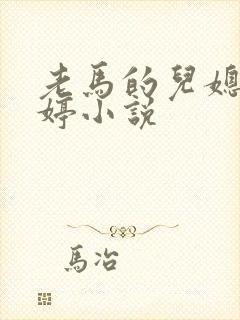 老馬的兒媳
婷小説
馬冶